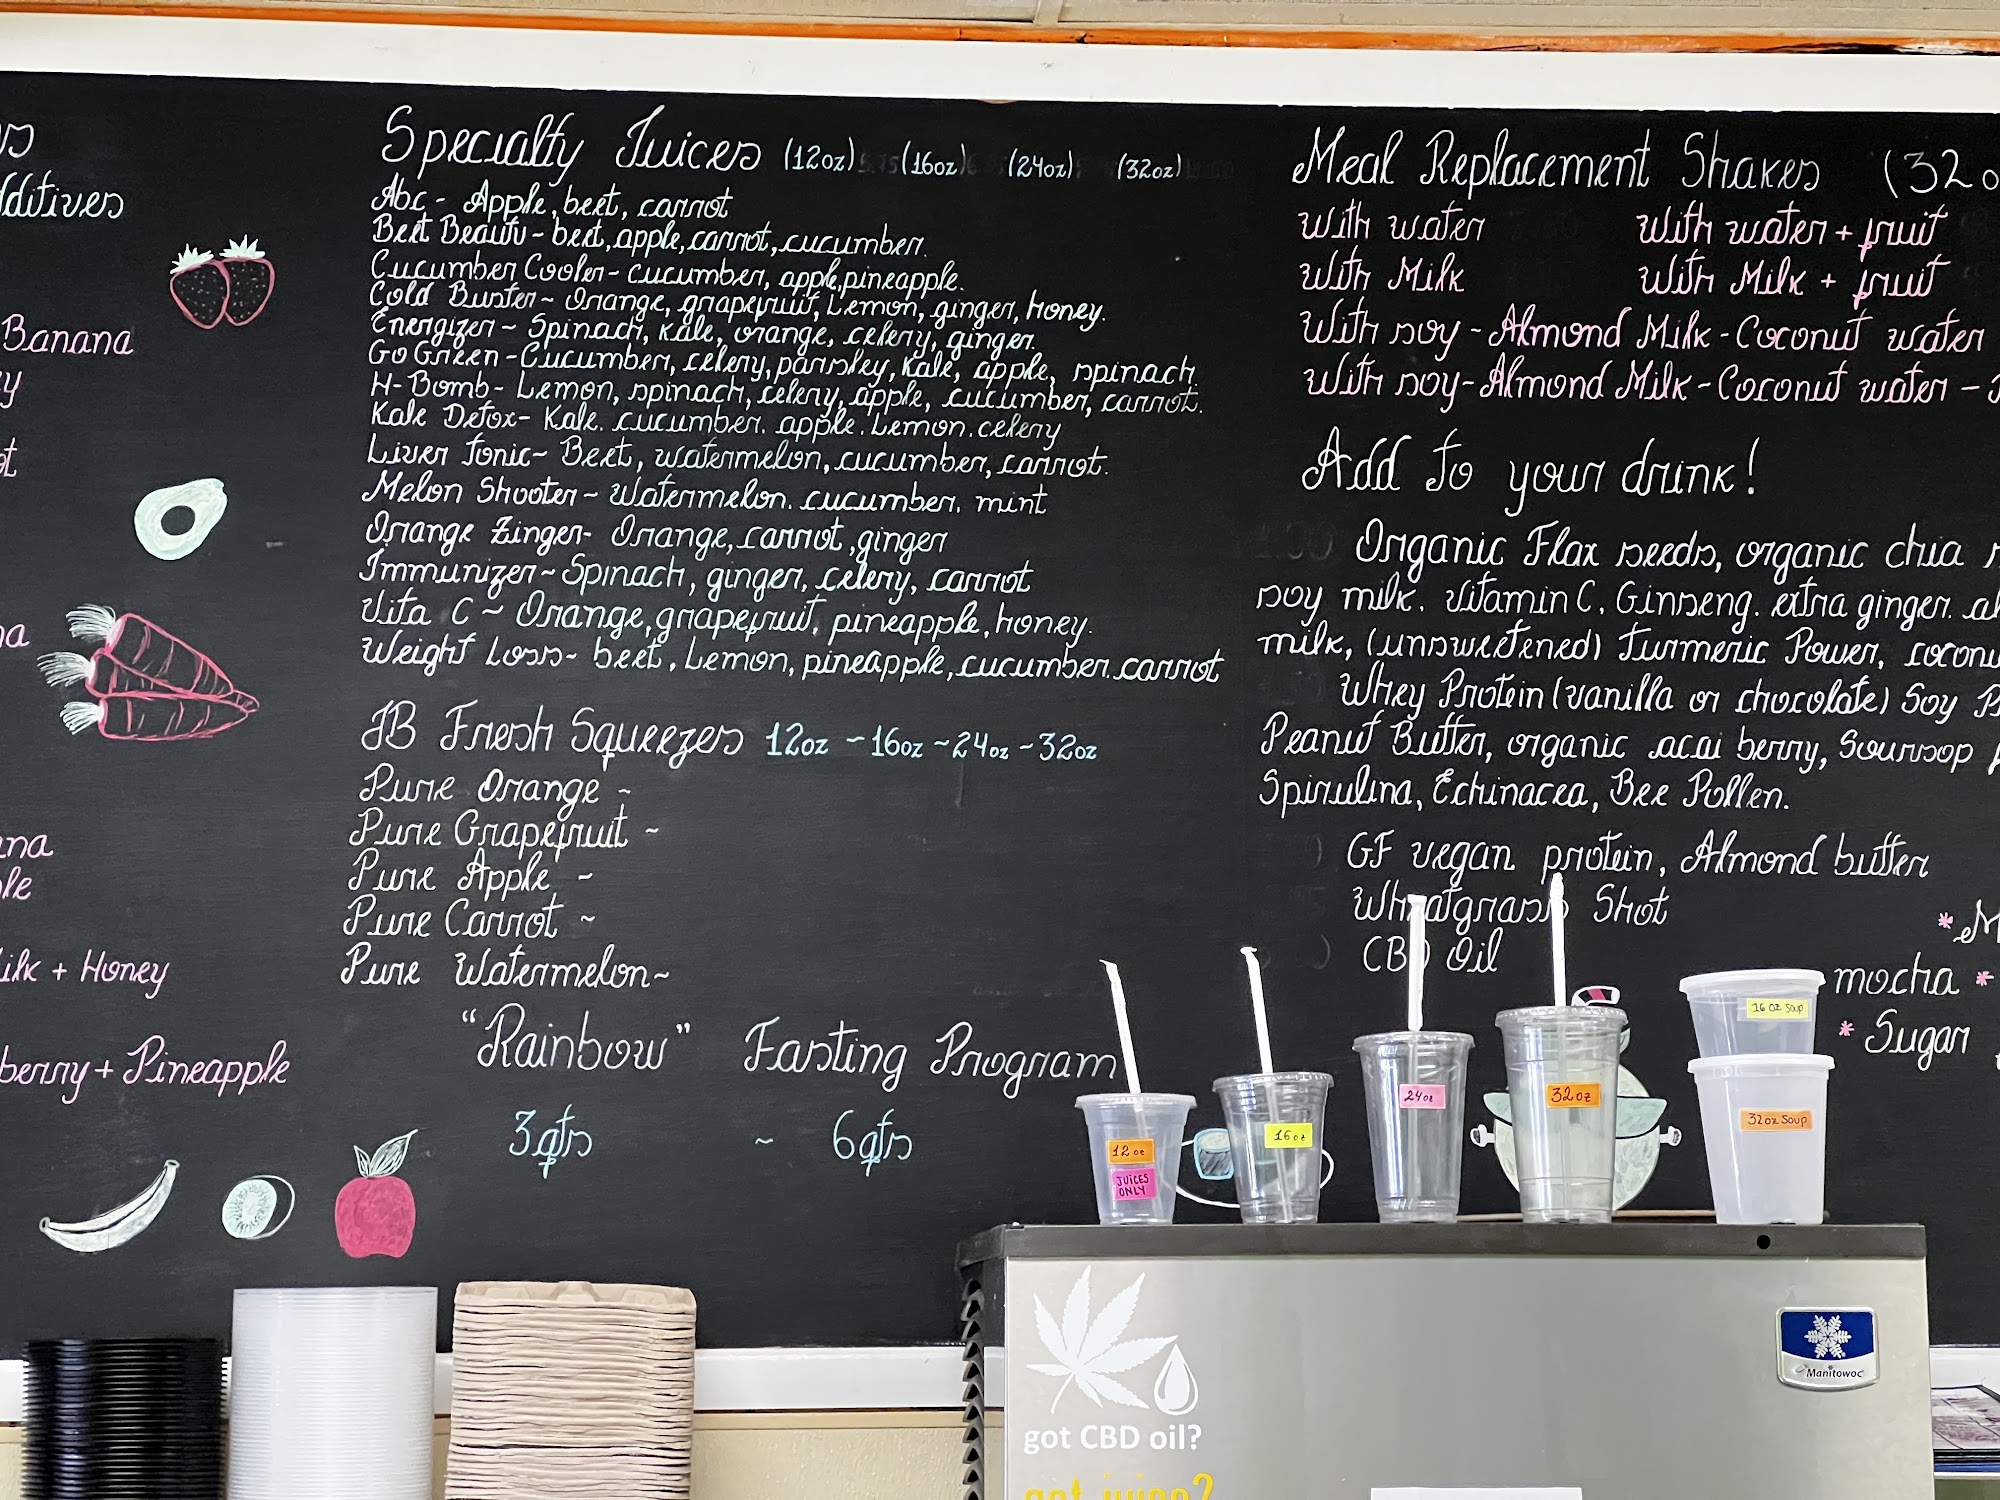 dditives
Banana
Milk + Honey
berry + Pineapple
Specialty Juices (12oz) (16oz) (24oz) (32oz)
Abc - Apple, beet, carrot
Beet Beauty - beet, apple, carrot, cucumber.
Cucumber Cooler - cucumber, apple, pineapple.
Cold Buster ~ Orange, grapefruit, Lemon, ginger, honey.
Energizer ~ Spinach, kale, orange, celery, ginger.
Go Green - Cucumber, celery, parsley, kale, apple, spinach.
H-Bomb - Lemon, spinach, celery, apple, cucumber, carrot.
Kale Detox - Kale. cucumber. apple. Lemon. celery
Liver Tonic ~ Beet, watermelon, cucumber, carrot.
Melon Shooter ~ Watermelon. cucumber. mint
Orange Zinger - Orange, carrot, ginger
Immunizer ~ Spinach, ginger, celery, carrot
Vita C ~ Orange, grapefruit, pineapple, honey.
Weight Loss ~ beet, Lemon, pineapple, cucumber. carrot
JB Fresh Squeezes 12oz ~ 16oz ~ 24oz ~ 32oz
Pure Orange ~
Pure Grapefruit ~
Pure Apple ~
Pure Carrot ~
Pure Watermelon ~
"Rainbow" Fasting Program
3qts ~ 6qts
Meal Replacement Shakes (32o
With water With water + fruit
With Milk With Milk + fruit
With soy - Almond Milk - Coconut water
With soy - Almond Milk - Coconut water -
Add to your drink!
Organic Flax seeds, organic chia
soy milk. Vitamin C. Ginseng. extra ginger.
milk, (unsweetened) Turmeric Power, coconu
Whey Protein (vanilla or chocolate) Soy
Peanut Butter, organic acai berry, Soursop
Spirulina, Echinacea, Bee Pollen.
GF vegan protein, Almond butter
Wheatgrass Shot
CBD Oil
mocha *
* Sugar
12 oz
JUICES
ONLY
16 oz
24oz
32oz
16 oz SOUP
32oz SOUP
Manitowoc
got CBD oil?
got juice?